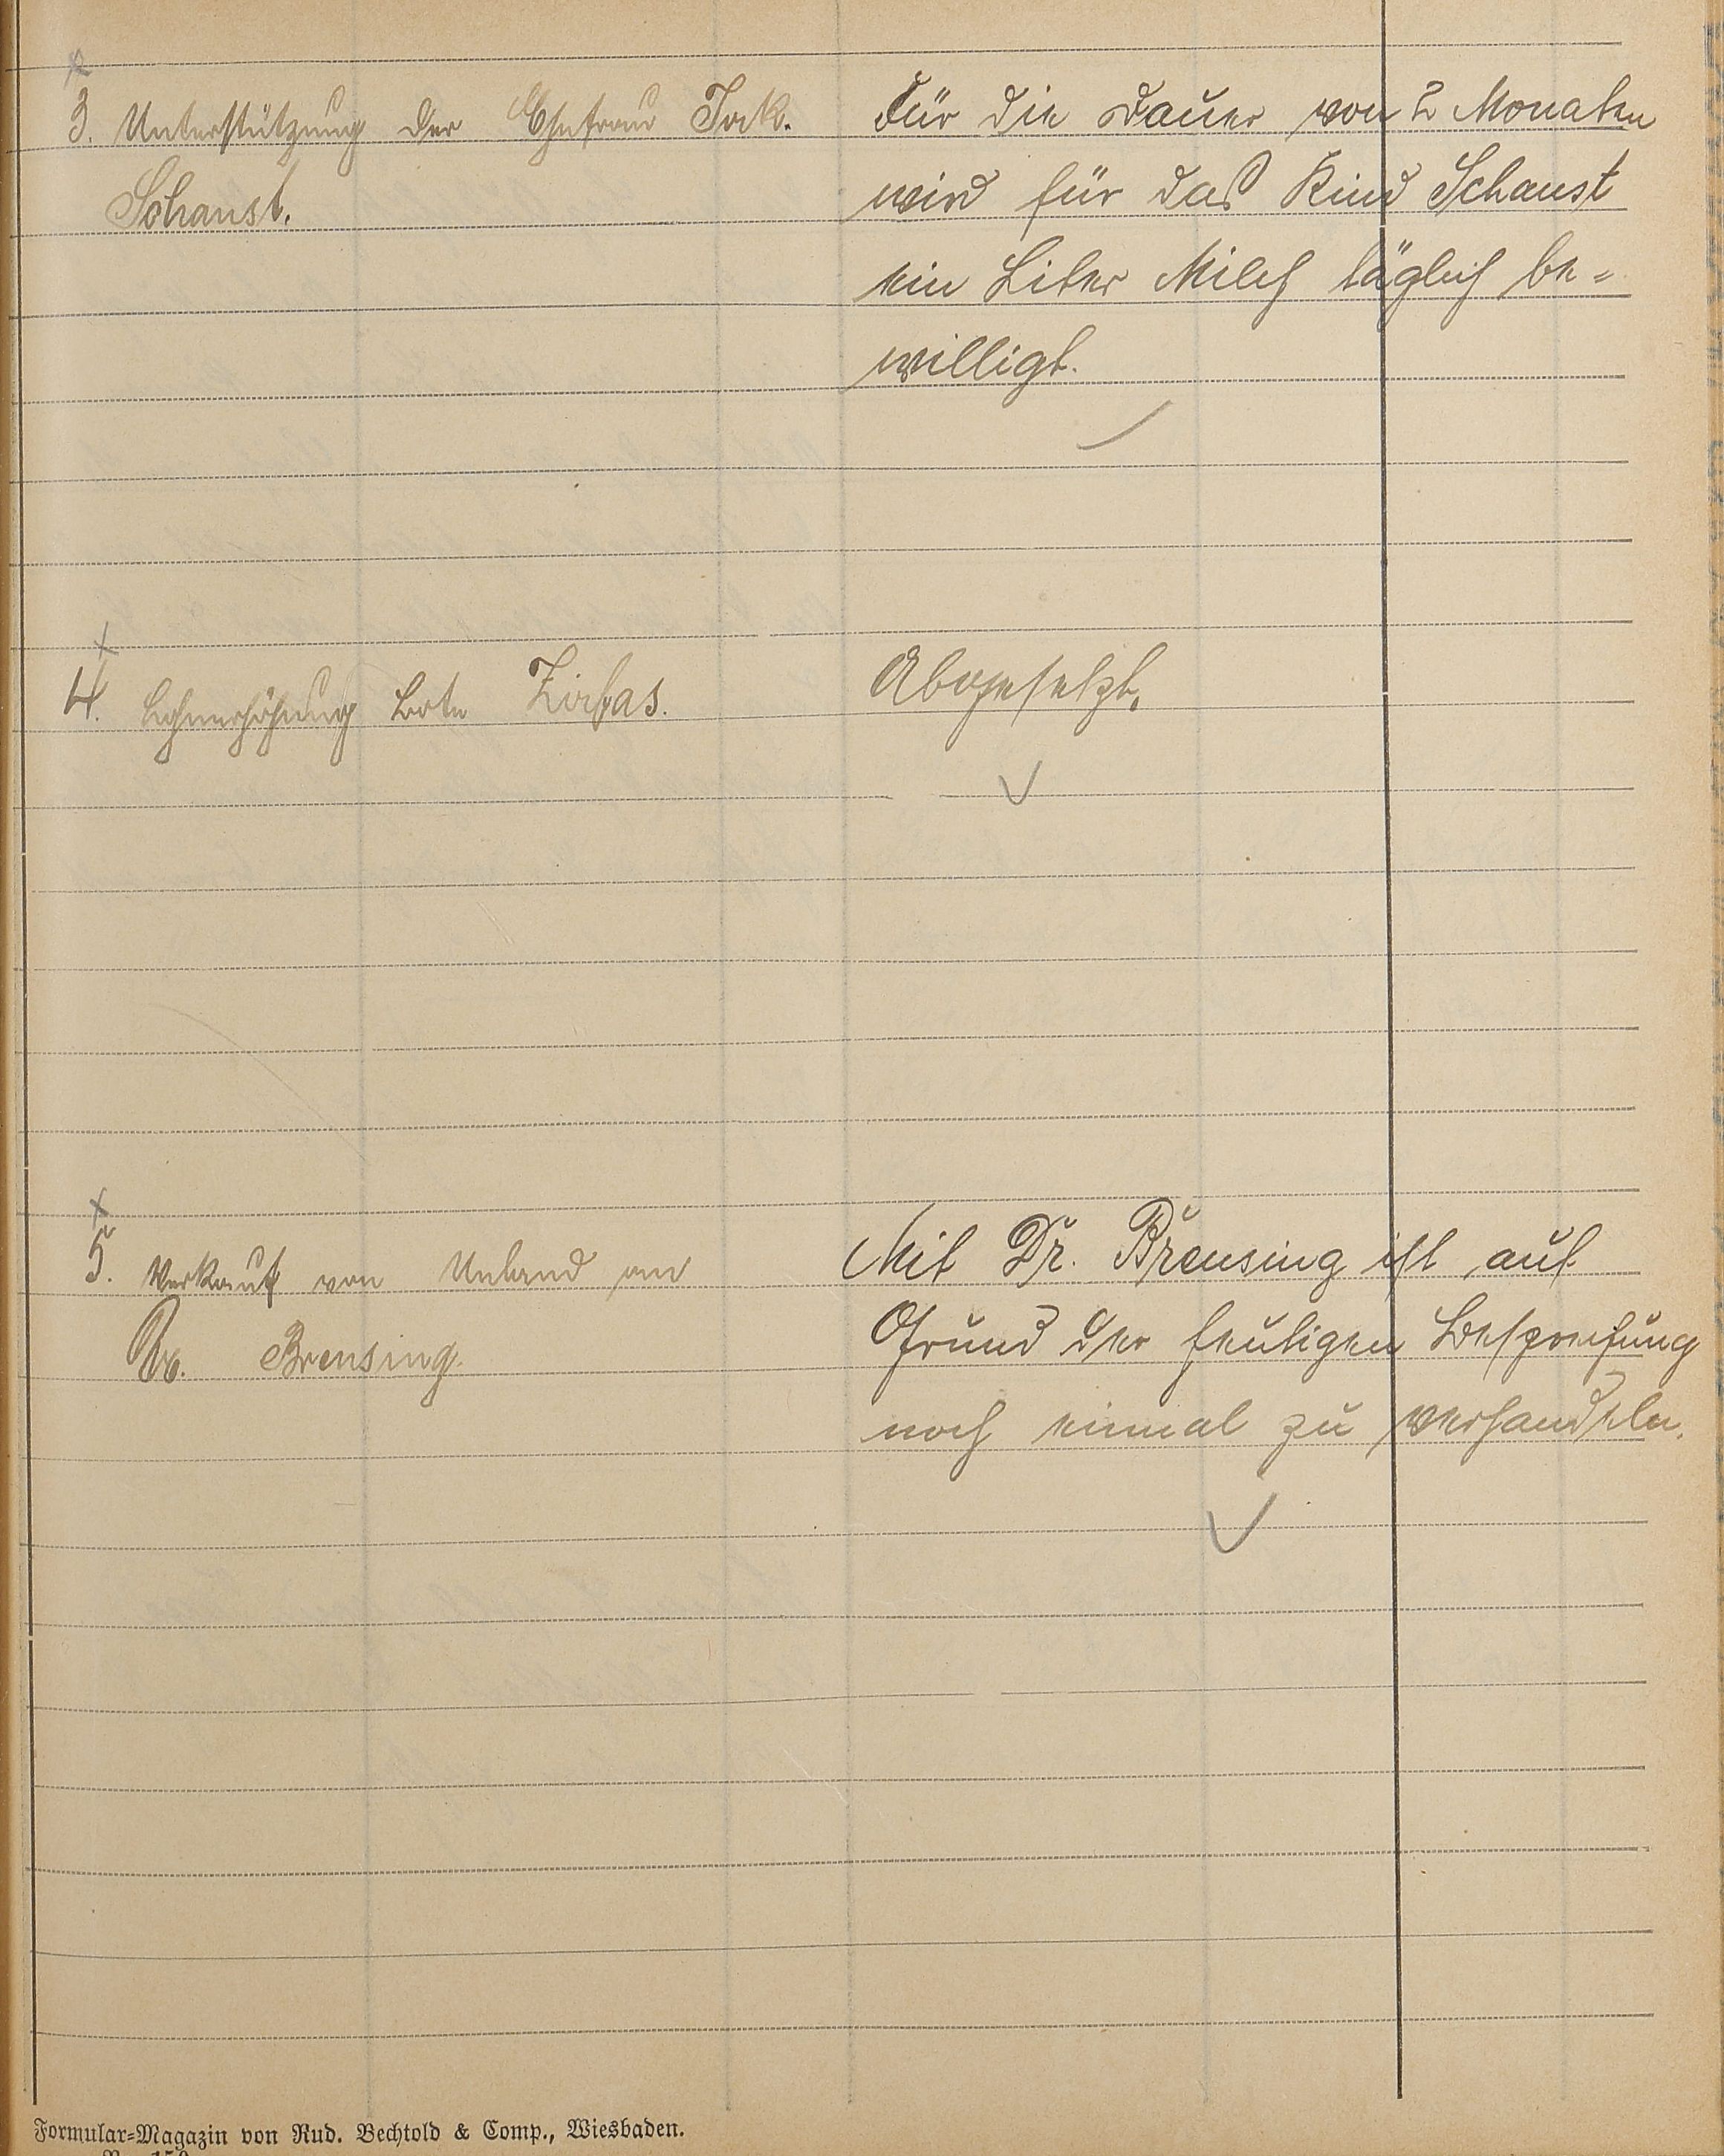 3. Unterstützung der Ehefrau Jak.
Schaust.
Für die Dauer von 2 Monaten
wird für das Kind Schaust
ein Liter Milch täglich be=
willigt.
4. Lohnerhöhung Bote Zirbas.
Abgesetzt.
5. Verkauf von Unland an
Dr. Brensing.
Mit Dr. Brensing ist auf
Grund der heutigen Besprechung
noch einmal zu verhandeln.
Formular=Magazin von Rud. Bechtold & Comp., Wiesbaden.